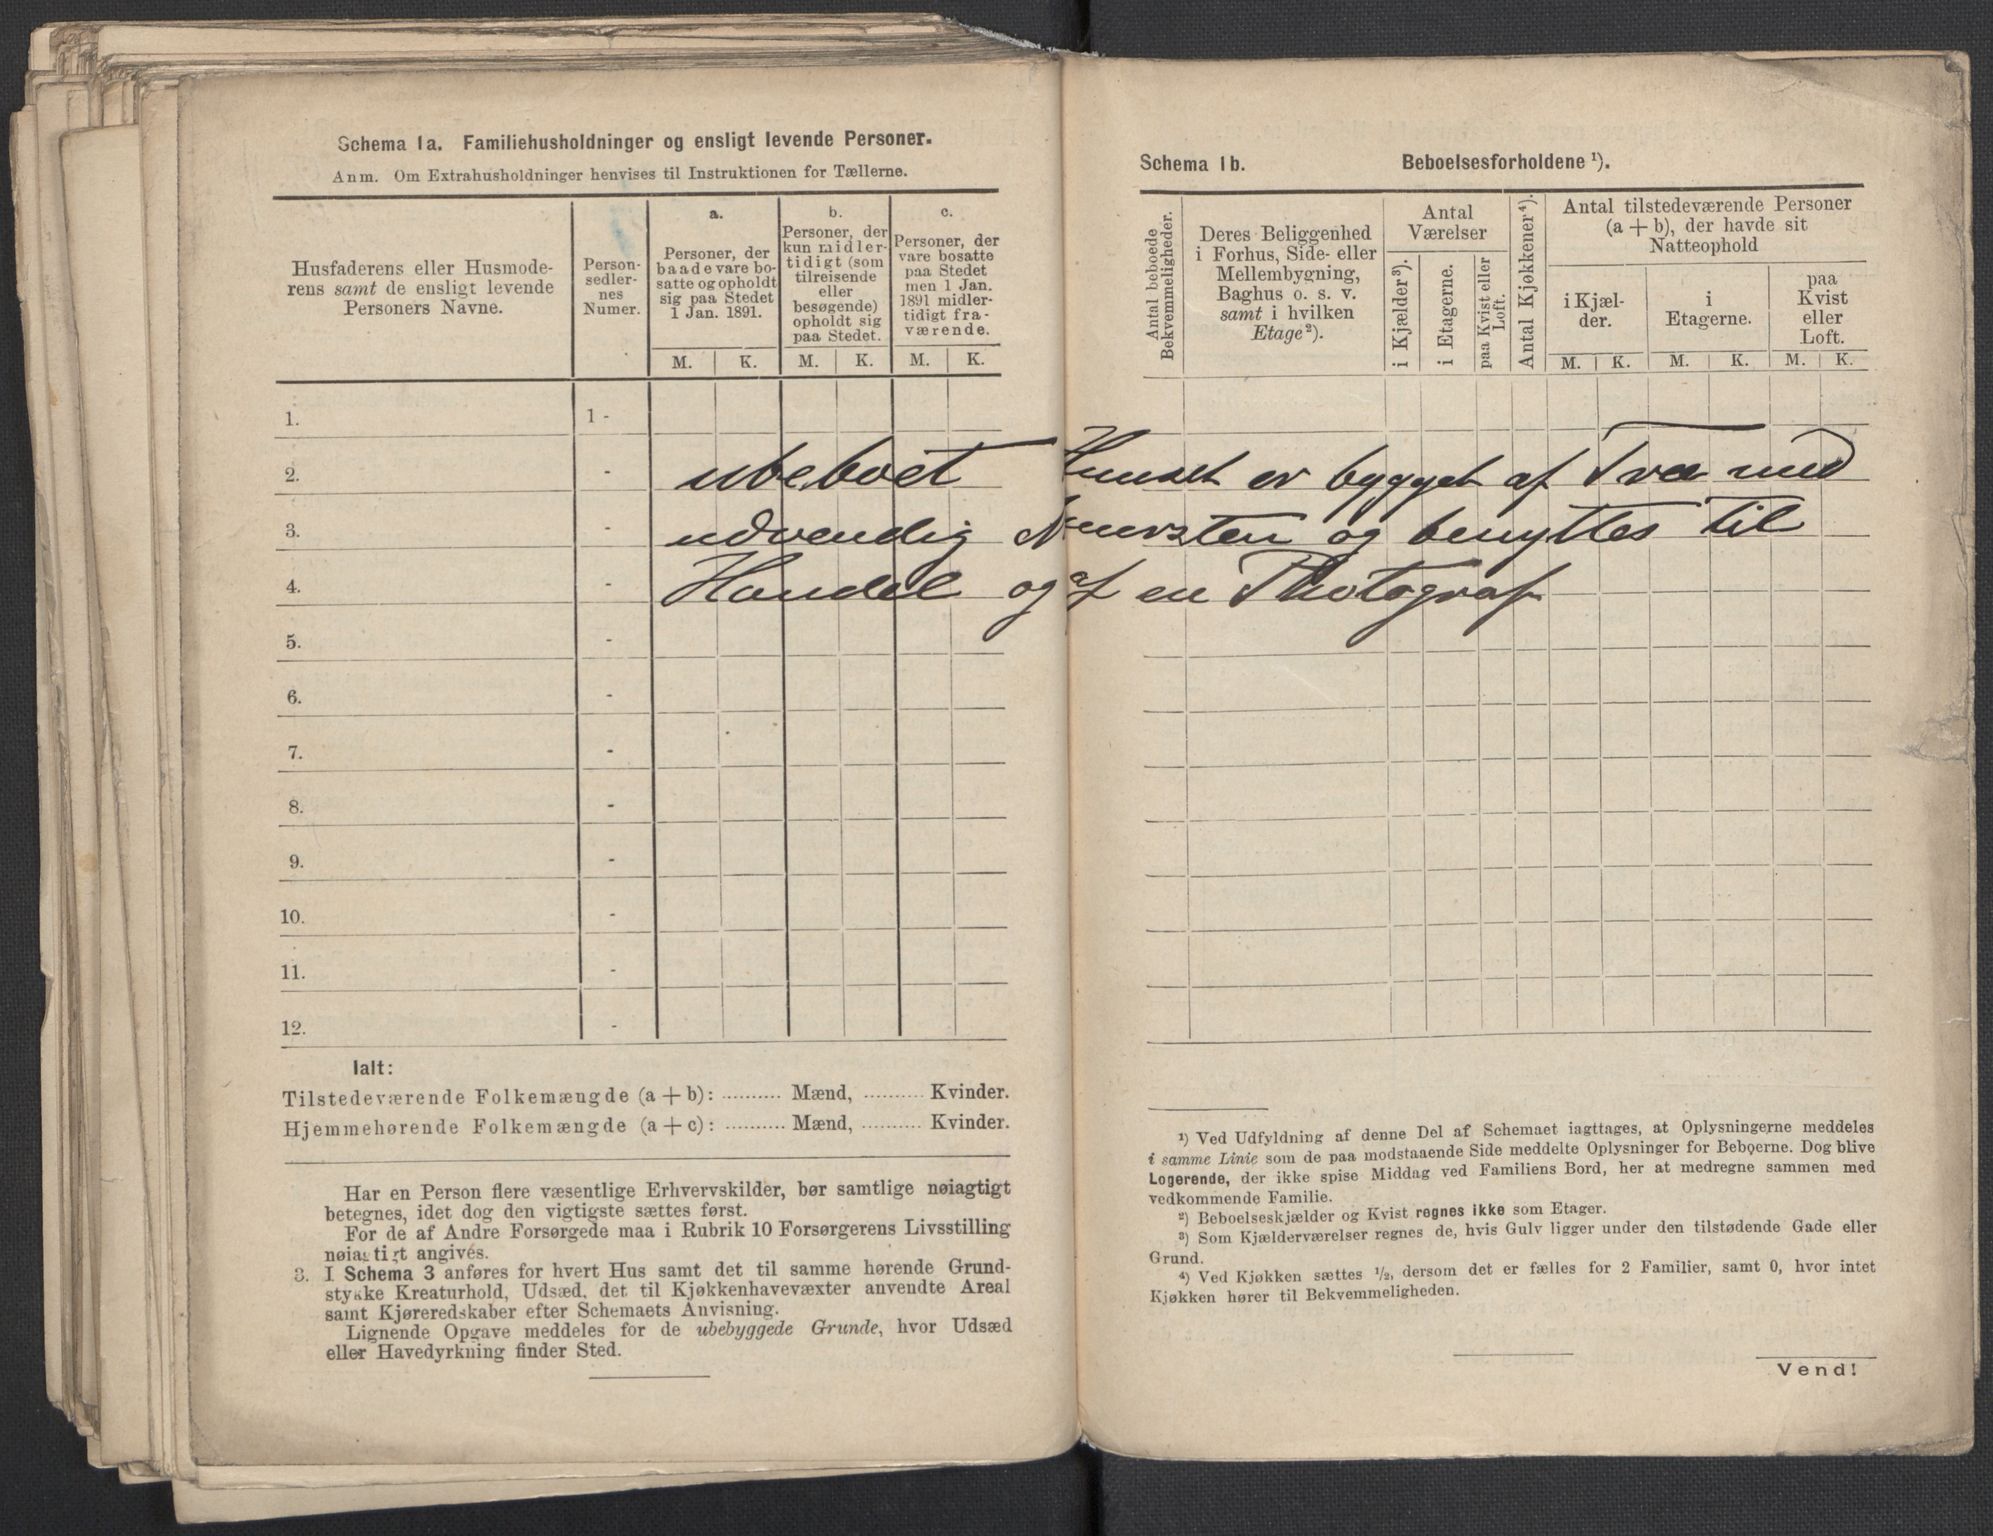 Schema 1a. Familiehusholdninger og ensligt levende Personer.
Anm. Om Extrahusholdninger henvises til Instruktionen for Tællerne.
Husfaderens eller Husmode-
rens samt de ensligt levende
Personers Navne.
Person-
sedler-
nes
Numer.
a.
Personer, der
baade vare bo-
satte og opholdt
sig paa Stedet
1 Jan. 1891.
b.
Personer, der
kun midler-
tidigt (som
tilreisende
eller
besøgende)
opholdt sig
paa Stedet.
c.
Personer, der
vare bosatte
paa Stedet
men 1 Jan.
1891 midler-
tidigt fra-
værende.
M. K. M. K. M. K.
1. 1 -
2. -
3. -
4. -
5. -
6. -
7. -
8. -
9. -
10. -
11. -
12. -
Ialt:
Tilstedeværende Folkemængde (a + b): .......... Mænd, .......... Kvinder.
Hjemmehørende Folkemængde (a + c): .......... Mænd, .......... Kvinder.
Har en Person flere væsentlige Erhvervskilder, bør samtlige nøiagtigt
betegnes, idet dog den vigtigste sættes først.
For de af Andre Forsørgede maa i Rubrik 10 Forsørgerens Livsstilling
nøiagtigt angives.
3. I Schema 3 anføres for hvert Hus samt det til samme hørende Grund-
stykke Kreaturhold, Udsæd, det til Kjøkkenhavevæxter anvendte Areal
samt Kjøreredskaber efter Schemaets Anvisning.
Lignende Opgave meddeles for de ubebyggede Grunde, hvor Udsæd
eller Havedyrkning finder Sted.
Schema 1b. Beboelsesforholdene ¹).
Antal beboede
Bekvemmeligheder.
Deres Beliggenhed
i Forhus, Side- eller
Mellembygning,
Baghus o. s. v.
samt i hvilken
Etage²).
Antal
Værelser
i Kjælder³).
i Etagerne.
paa Kvist eller
Loft.
Antal Kjøkkener⁴).
Antal tilstedeværende Personer
(a + b), der havde sit
Natteophold
i Kjæl-
der.
i
Etagerne.
paa
Kvist
eller
Loft.
M. K. M. K. M. K.
ubeboet Huuset er bygget af Træ med
udvendig Muursten og benyttes til
Handel og af en Photograf
¹) Ved Udfyldning af denne Del af Schemaet iagttages, at Oplysningerne meddeles
i samme Linie som de paa modstaaende Side meddelte Oplysninger for Beboerne. Dog blive
Logerende, der ikke spise Middag ved Familiens Bord, her at medregne sammen med
vedkommende Familie.
²) Beboelseskjælder og Kvist regnes ikke som Etager.
³) Som Kjælderværelser regnes de, hvis Gulv ligger under den tilstødende Gade eller
Grund.
⁴) Ved Kjøkken sættes ½, dersom det er fælles for 2 Familier, samt 0, hvor intet
Kjøkken hører til Bekvemmeligheden.
Vend!